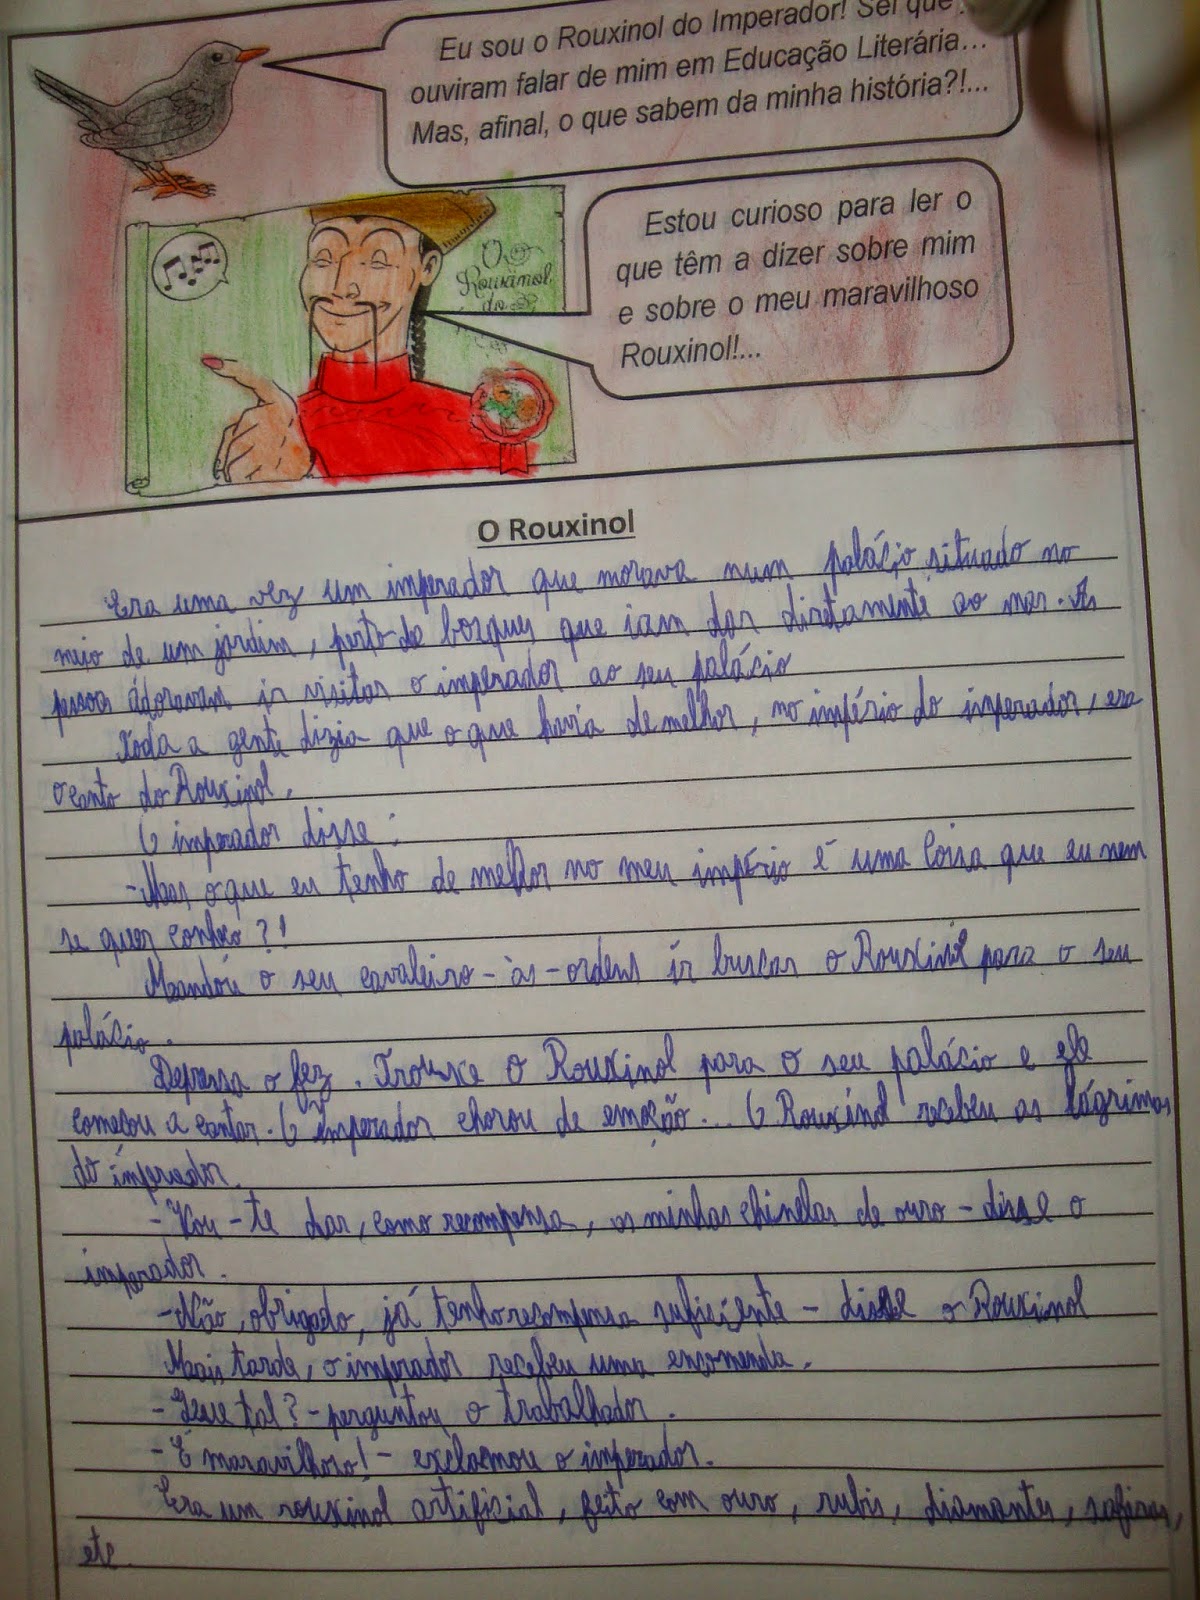 Eu sou o Rouxinol do Imperador! Sei que
ouviram falar de mim em Educação Literária...
Mas, afinal, o que sabem da minha história?!...
Estou curioso para ler o
que têm a dizer sobre mim
e sobre o meu maravilhoso
Rouxinol!...
O
Rouxinol
do
O Rouxinol
Era uma vez um imperador que morava num palácio situado no
meio de um jardim, perto de bosques que iam dar diretamente ao mar. As
pessoas adoravam ir visitar o imperador ao seu palácio
Toda a gente dizia que o que havia de melhor, no império do imperador, era
o canto do Rouxinol.
O imperador disse:
-Mas o que eu tenho de melhor no meu império é uma coisa que eu nem
se quer conheço?!
Mandou o seu cavaleiro-às-ordens ir buscar o Rouxinol para o seu
palácio.
Depressa o fez. Trouxe o Rouxinol para o seu palácio e ele
começou a cantar. O imperador chorou de emoção... O Rouxinol recebeu as lágrimas
do imperador.
-Vou-te dar, como recompensa, as minhas chinelas de ouro - disse o
imperador.
-Não, obrigado, já tenho recompensa suficiente - disse o Rouxinol
Mais tarde, o imperador recebeu uma encomenda.
- Que tal? - perguntou o trabalhador.
- É maravilhoso! - exclamou o imperador.
Era um rouxinol artificial, feito com ouro, rubis, diamantes, safiras,
etc.